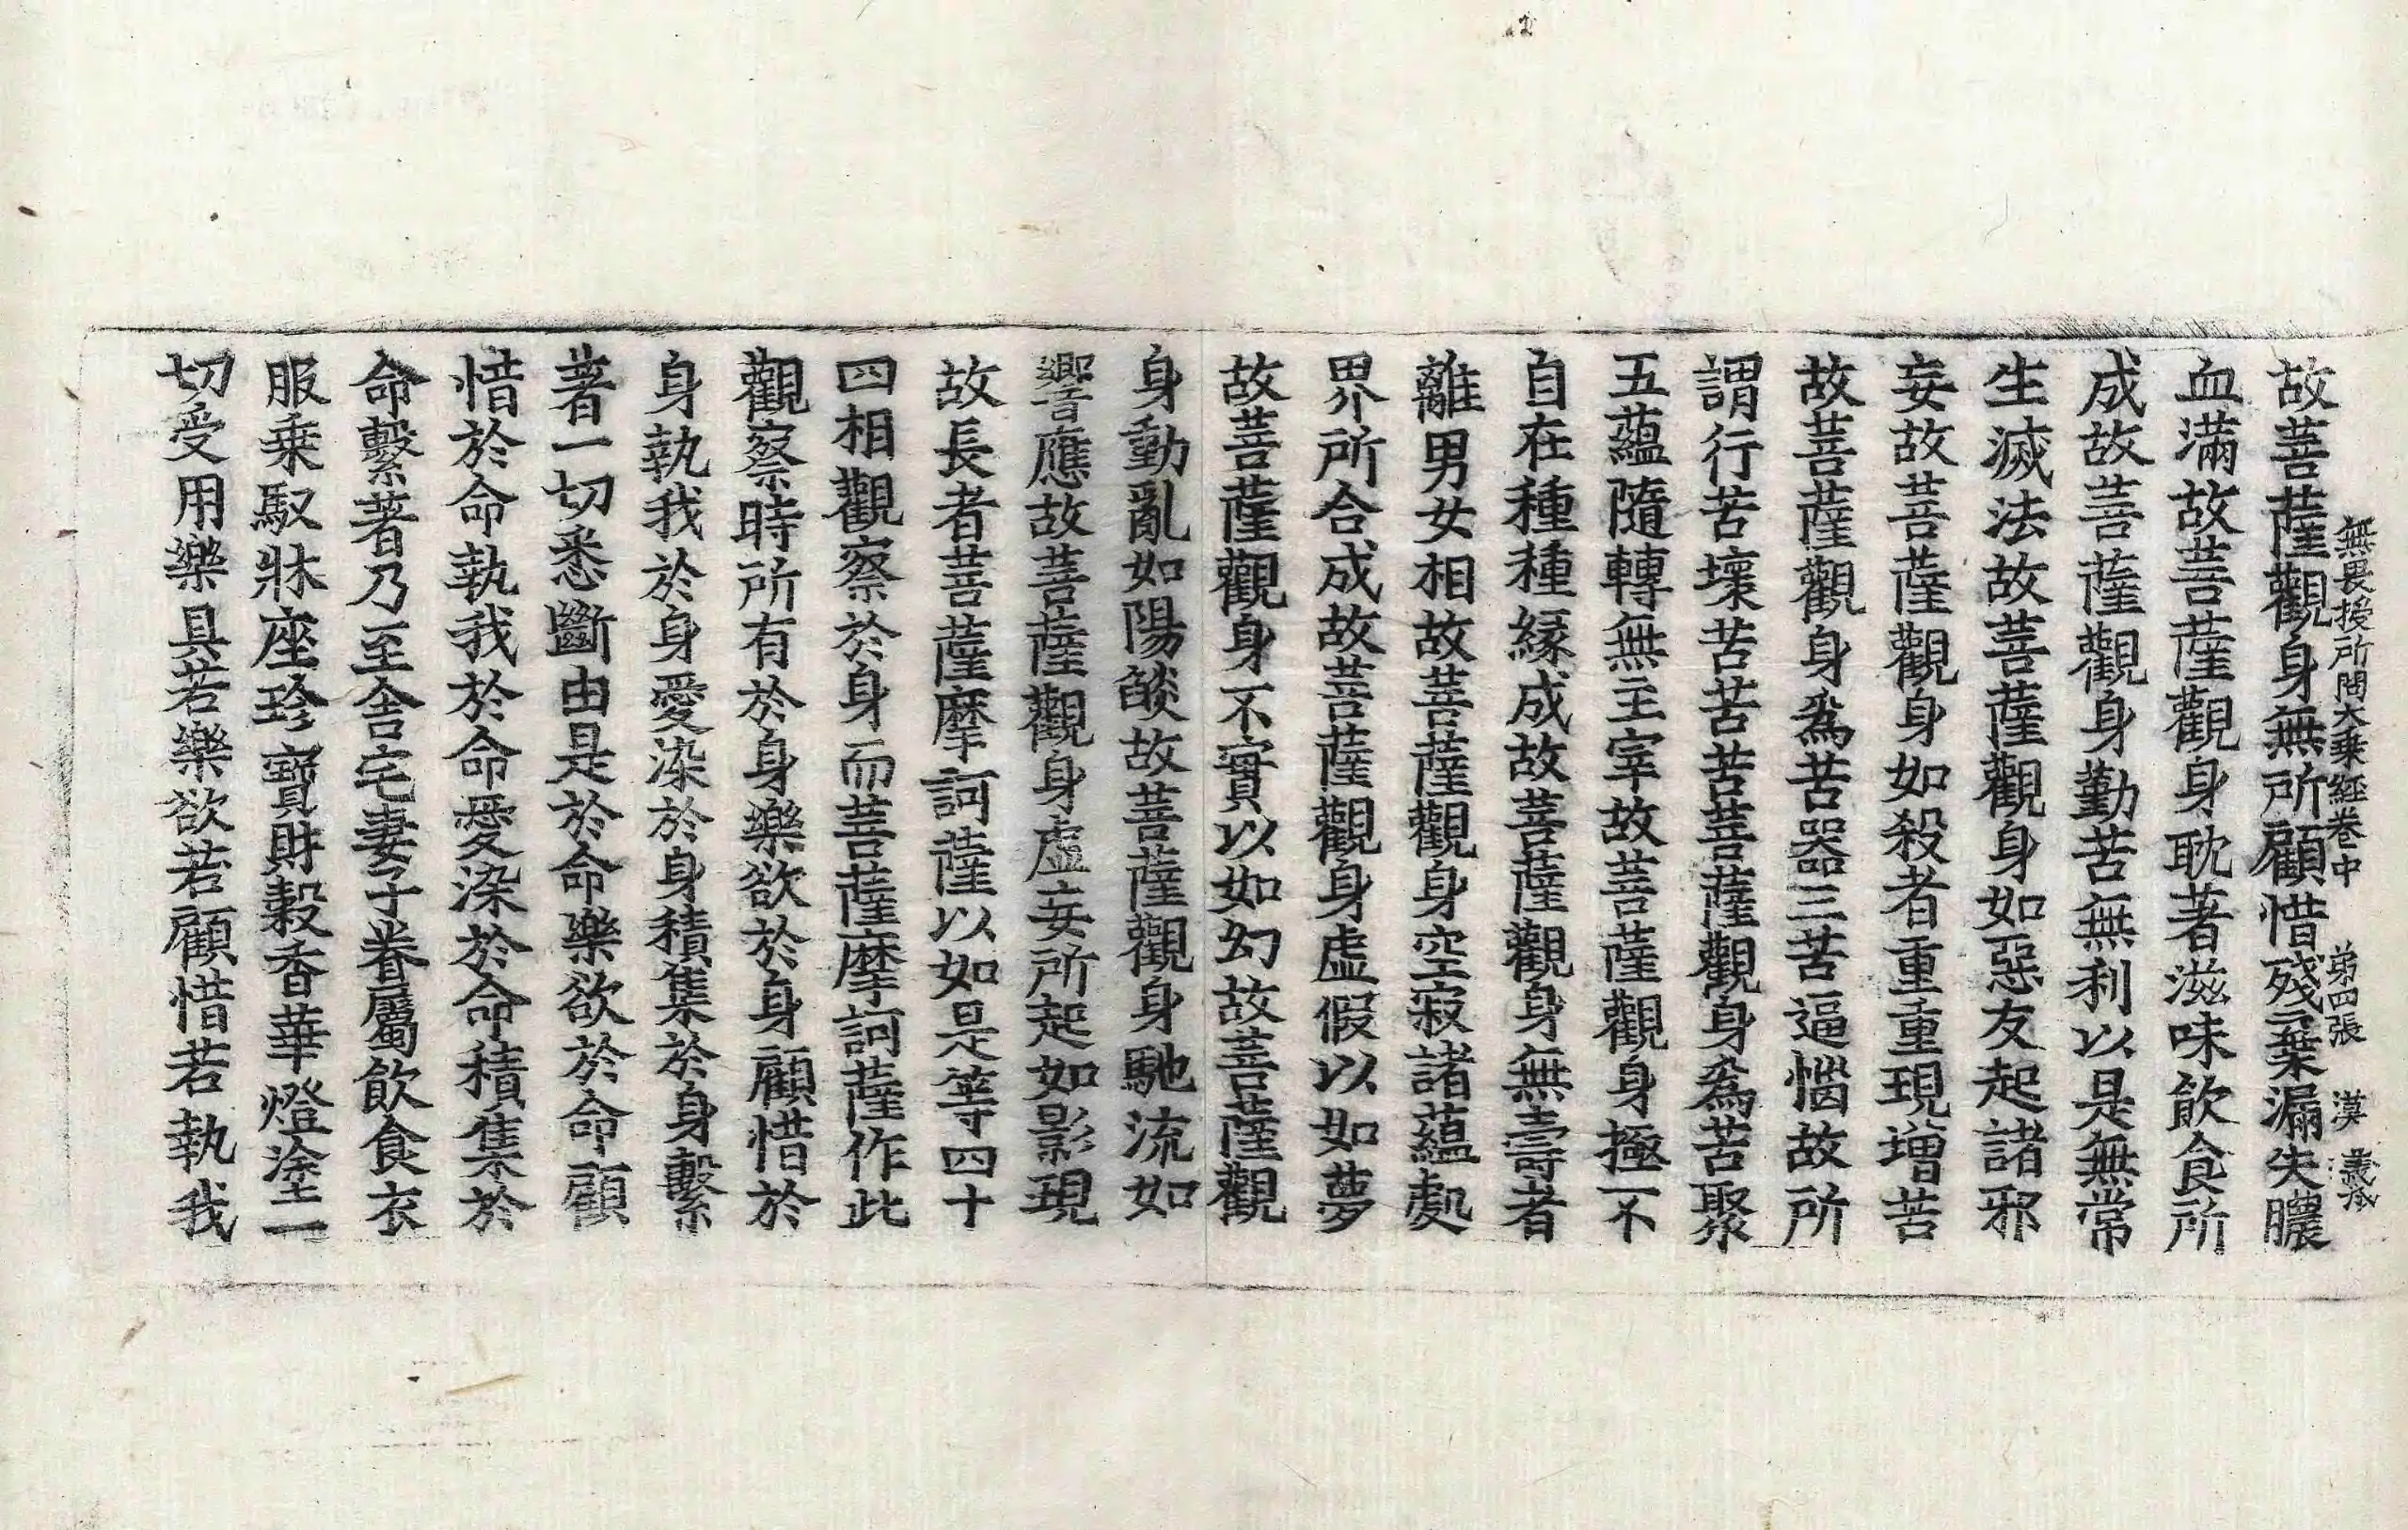 無畏授所問大乗経卷中 第四張 漢 義成
故菩薩觀身無所顧惜殘棄漏失膿
血滿故菩薩觀身耽著滋味飲食所
成故菩薩觀身勤苦無利以是無常
生滅法故菩薩觀身如惡友起諸邪
妄故菩薩觀身如殺者重重現增苦
故菩薩觀身爲苦器三苦逼惱故所
謂行苦壞苦苦苦菩薩觀身爲苦聚
五蘊隨轉無主宰故菩薩觀身極不
自在種種緣成故菩薩觀身無壽者
離男女相故菩薩觀身空寂諸蘊處
界所合成故菩薩觀身虛假以如夢
故菩薩觀身不實以如幻故菩薩觀
身動亂如陽燄故菩薩觀身馳流如
響應故菩薩觀身虛妄所起如影現
故長者菩薩摩訶薩以如是等四十
四相觀察於身而菩薩摩訶薩作此
觀察時所有於身樂欲於身顧惜於
身執我於身愛染於身積集於身繫
著一切悉斷由是於命樂欲於命顧
惜於命執我於命愛染於命積集於
命繫著乃至舍宅妻子眷屬飲食衣
服乗馭牀座珍寶財穀香華燈塗一
切受用樂具若樂欲若顧惜若執我